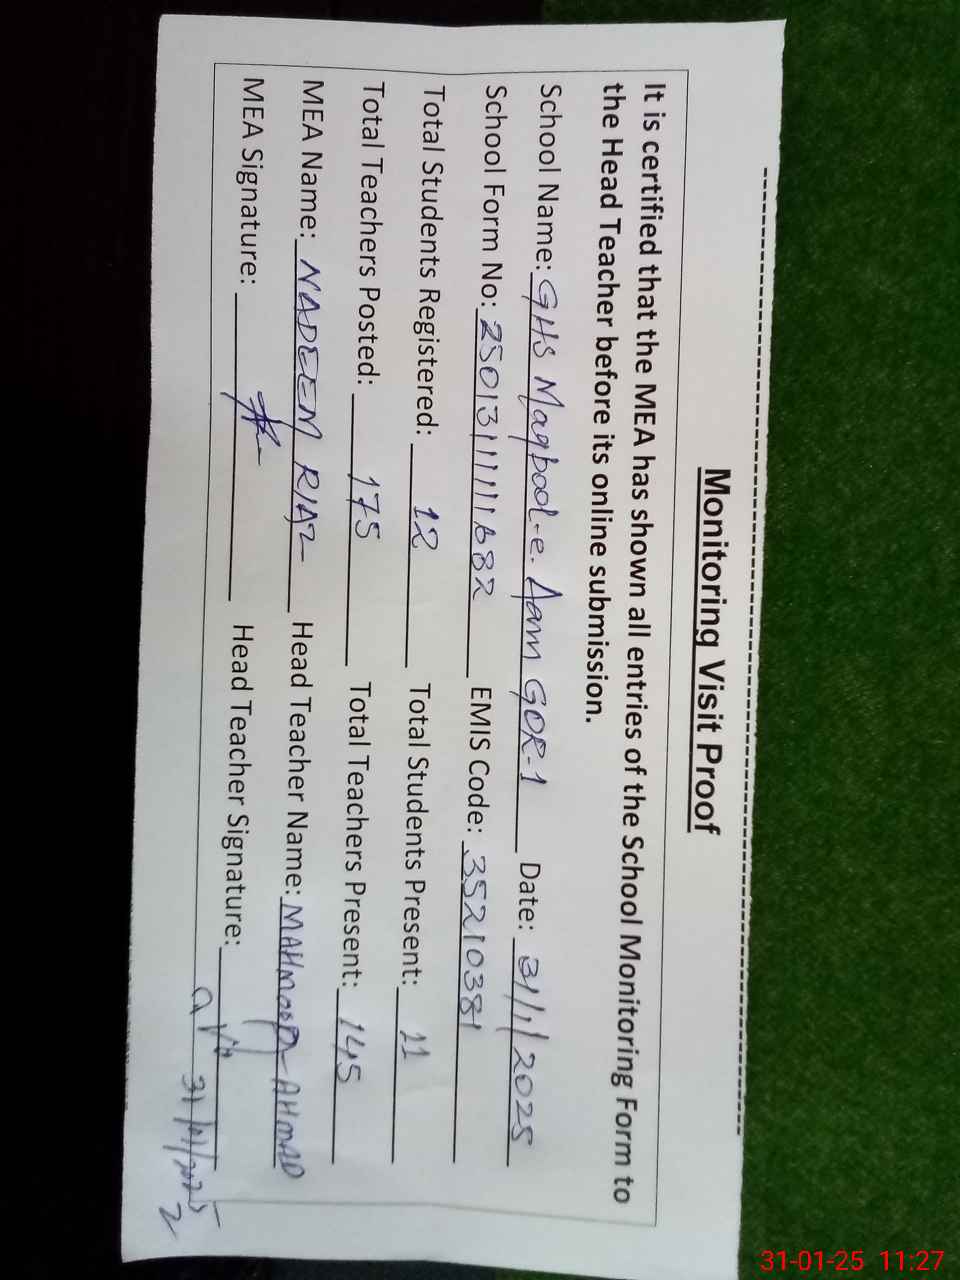 Monitoring Visit Proof
It is certified that the MEA has shown all entries of the School Monitoring Form to
the Head Teacher before its online submission.
School Name: GHS Maqbool-e-Aam GOR-1 Date: 31/1/2025
School Form No: 25013111111682 EMIS Code: 35210381
Total Students Registered: 12 Total Students Present: 11
Total Teachers Posted: 175 Total Teachers Present: 145
MEA Name: NADEEM RIAZ Head Teacher Name: MAHMOOD AHMAD
MEA Signature: Head Teacher Signature:
31/01/2025
31-01-25 11:27